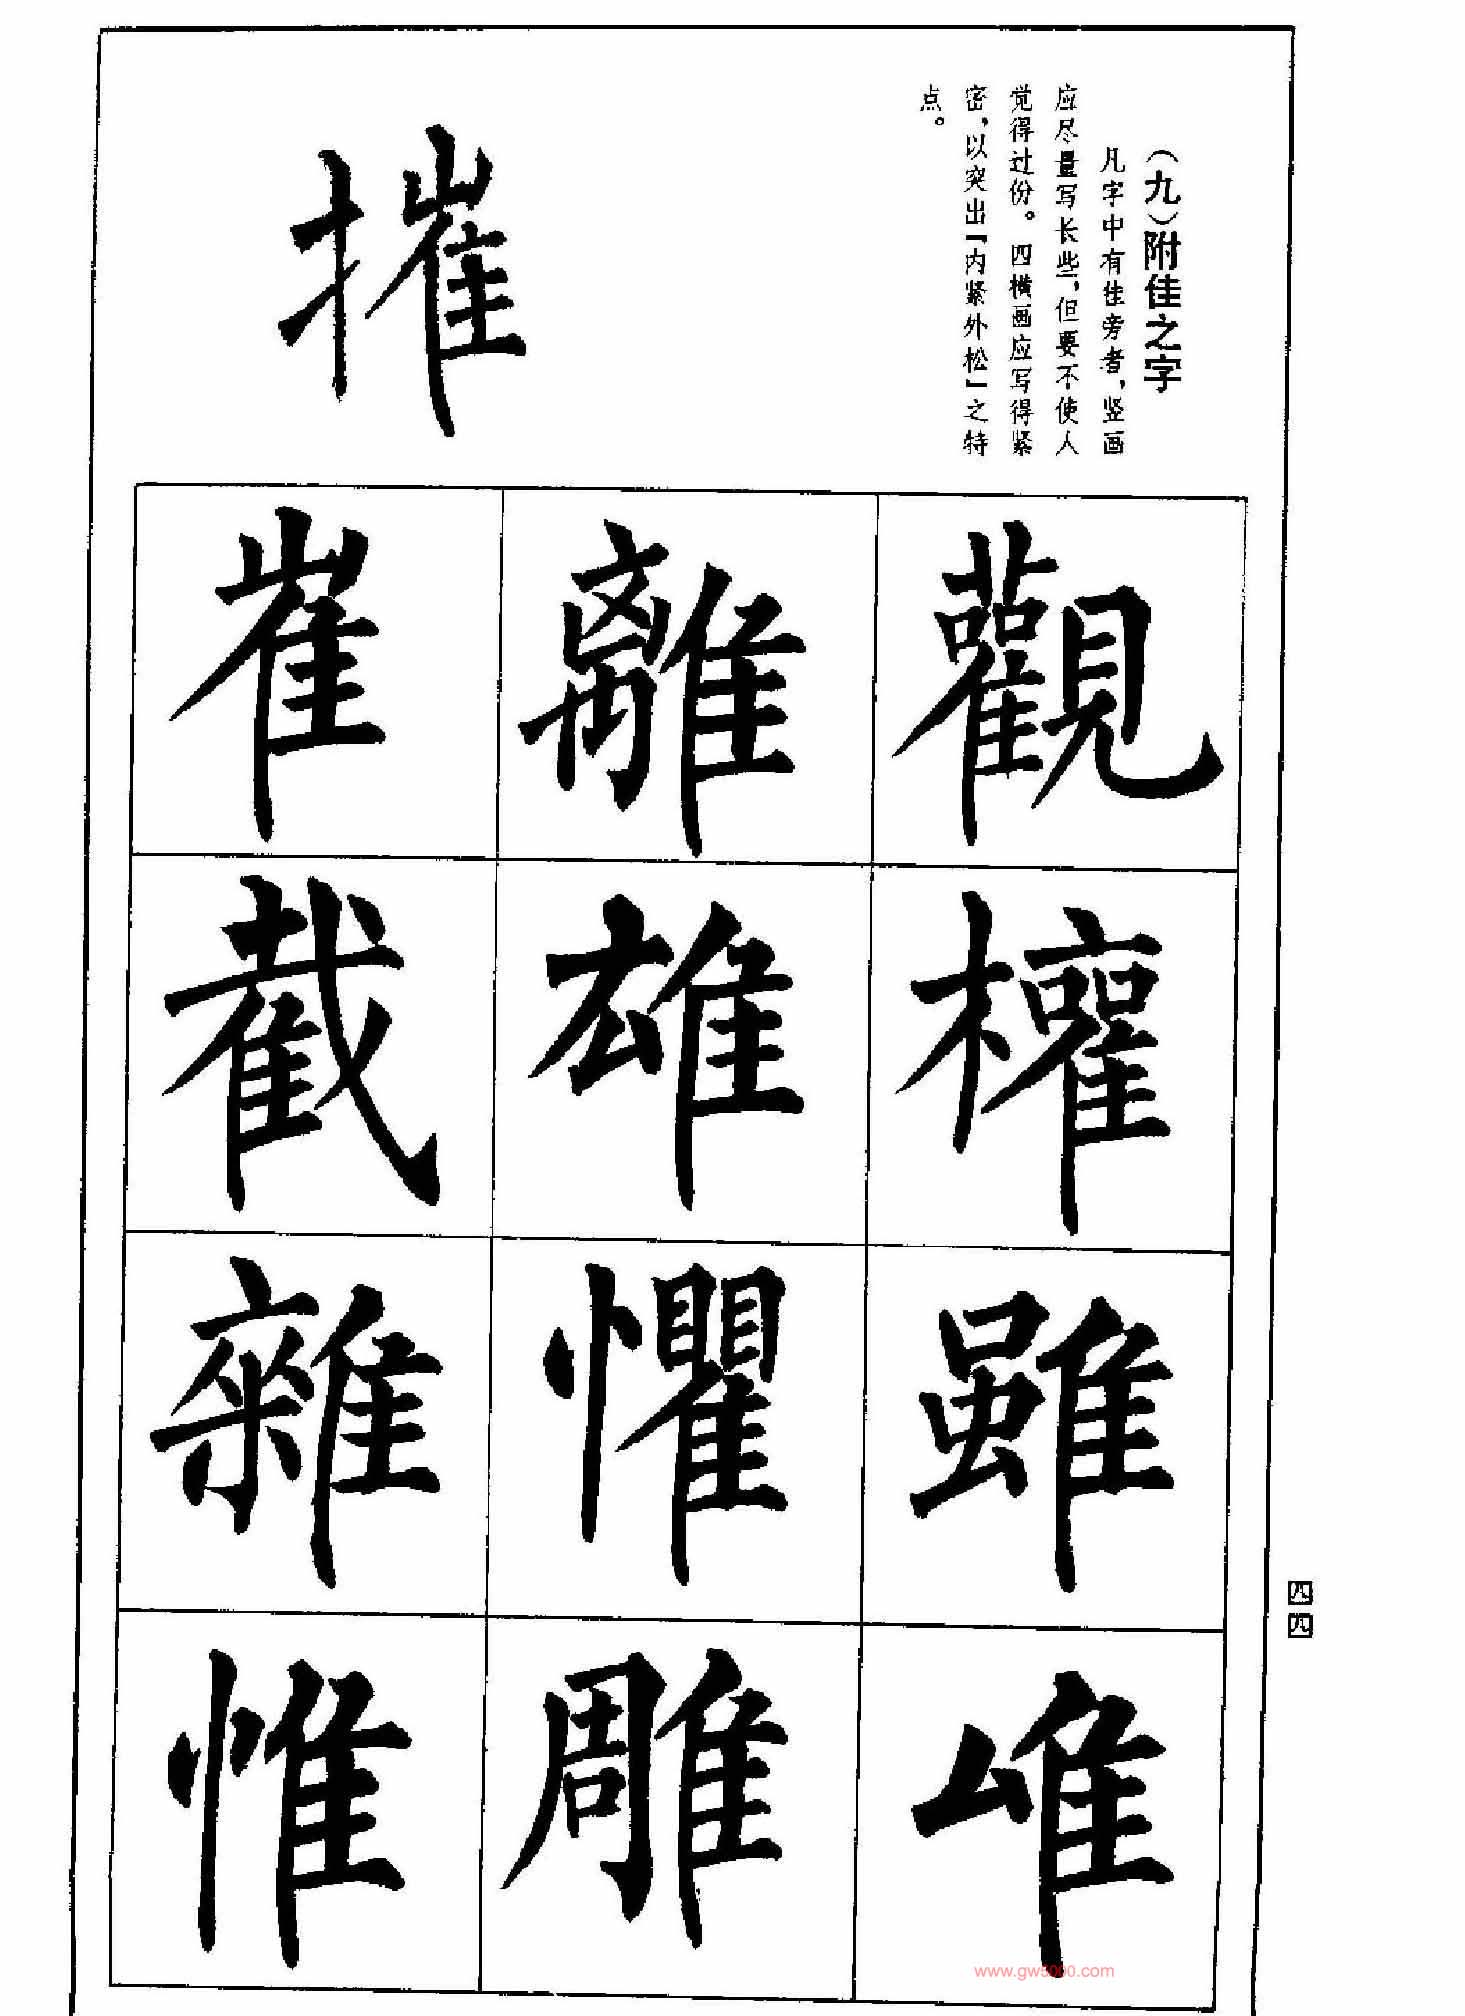 （九）附佳之字
凡字中有佳旁者，竖画
应尽量写长些，但要不使人
觉得过份。四横画应写得紧
密，以突出「内紧外松」之特
点。
摧
觀權雖唯
離雄懼雕
崔截雜惟
四四
www.gw5000.com